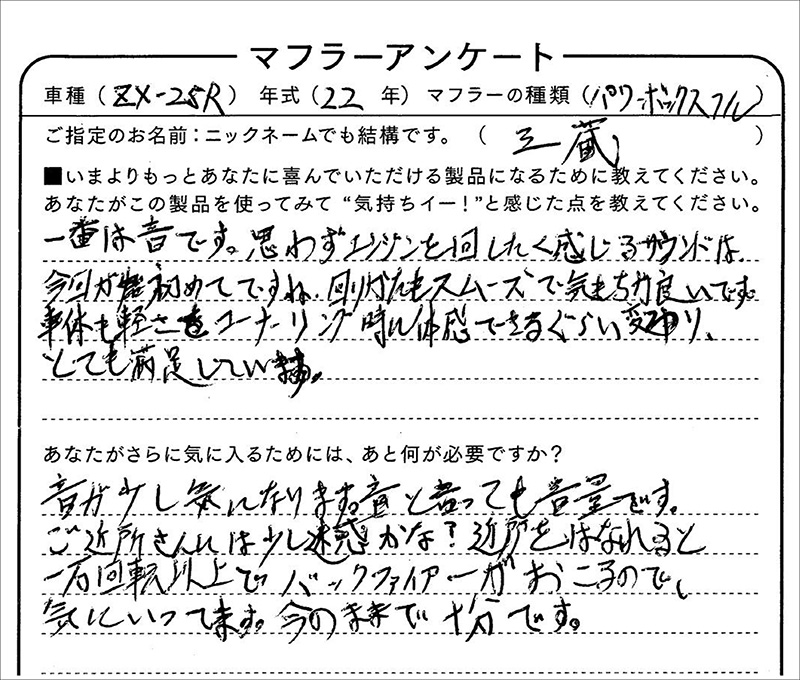 マフラーアンケート
車種（ZX-25R）年式（22 年）マフラーの種類（パワーボックスフル）
ご指定のお名前：ニックネームでも結構です。（ 三蔵 ）
■いまよりもっとあなたに喜んでいただける製品になるために教えてください。
あなたがこの製品を使ってみて“気持ちイー！”と感じた点を教えてください。
一番は音です。思わずエンジンを回したく感じるサウンドは
今回が初めてですね。回りかたもスムーズで気もちが良いです。
車体も軽さをコーナーリング時に体感できるぐらい変わり、
とても満足しています。
あなたがさらに気に入るためには、あと何が必要ですか？
音が少し気になります。音と言っても音量です。
ご近所さんには少し迷惑かな？近所をはなれると
一万回転以上でバックファイアーがおこるので、
気にいってます。今のままで十分です。